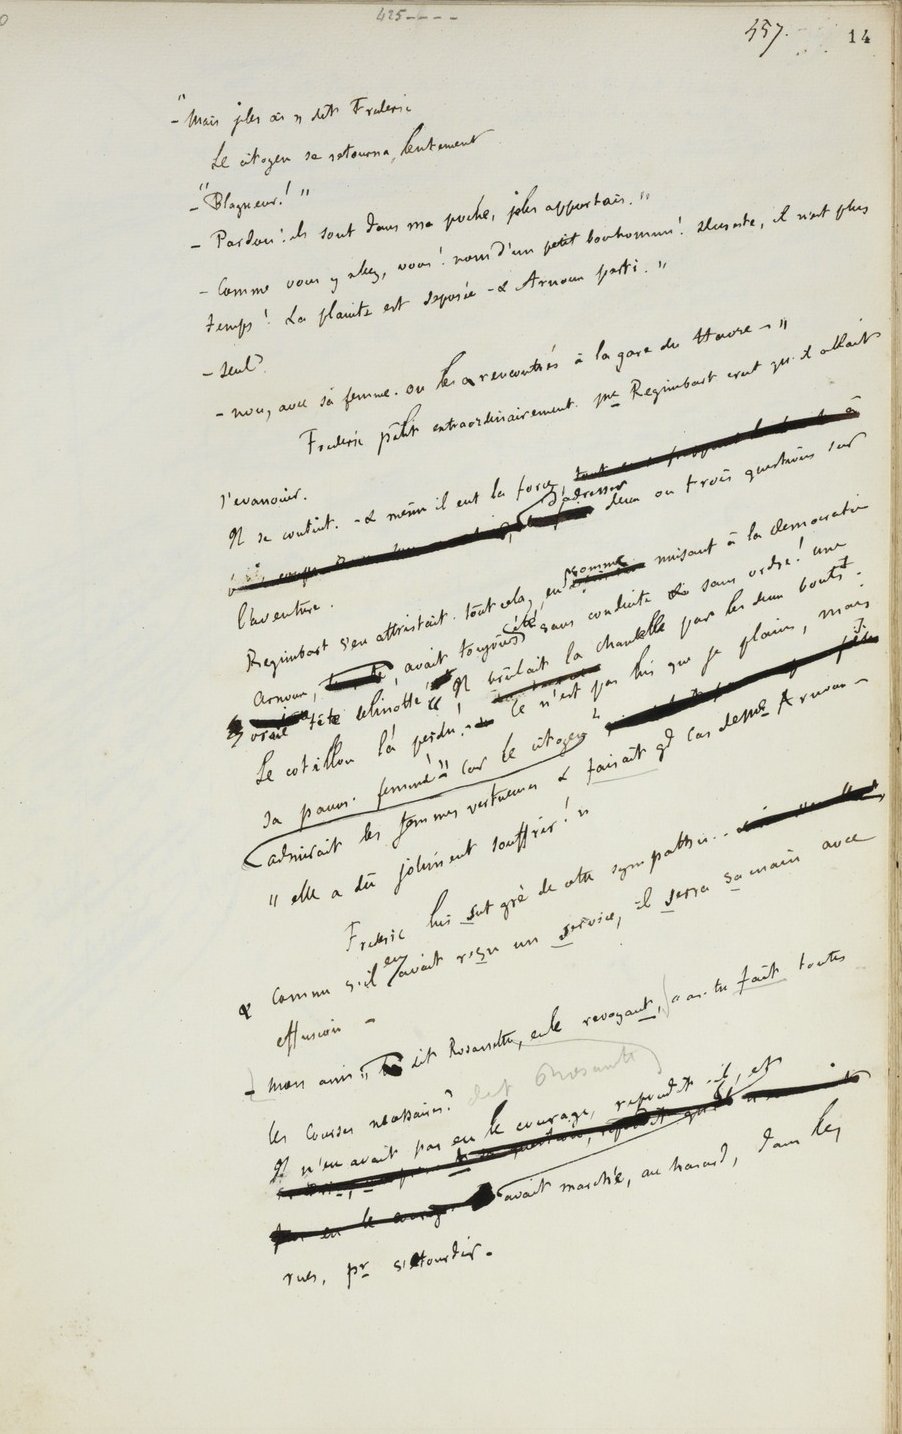 425 - - - -
457.
14
"- Mais je les ai » dit Frederic
Le citoyen se retourna, lentement
- "Blagueur! "
- Pardon! ils sont dans ma poche, je les apportais. "
- Comme vous y allez, vous! nom d'un petit bonhomme! du reste, il n'est plus
temps! La plainte est déposée - & Arnoux parti. "
- seul?
- non, avec sa femme. on les a rencontrés à la gare du Havre - "
Frederic pâlit extraordinairement. Me Regimbart crut qu'il allait
s'évanouir.
Il se contint. - & même il eut la force,
d'adresser deux ou trois questions sur
l'aventure.
Regimbart s'en attristait. tout cela, en somme nuisant à la democratie
Arnoux, avait toujours été sans conduite & sans ordre! une
vraie tête de linotte " Il brûlait la chandelle par les deux bouts!
Le cotillon l'a perdu! Ce n'est pas lui que je plains, mais
sa pauvr. femme! " car le citoyen
admirait les femmes vertueuses & faisait gd cas de Me Arnoux -
" elle a dû joliment souffrir! "
Frederic lui sut gré de cette sympathie.
& comme s'il en avait reçu un service, il serra sa main avec
effusion -
- mon ami " dit Rosanette, en le revoyant, " as-tu fait toutes
les courses necessaires? dit Rosanette
Il n'en avait pas eu le courage, repondit-il, et
avait marché, au hasard, dans les
rues, pr s'étourdir -